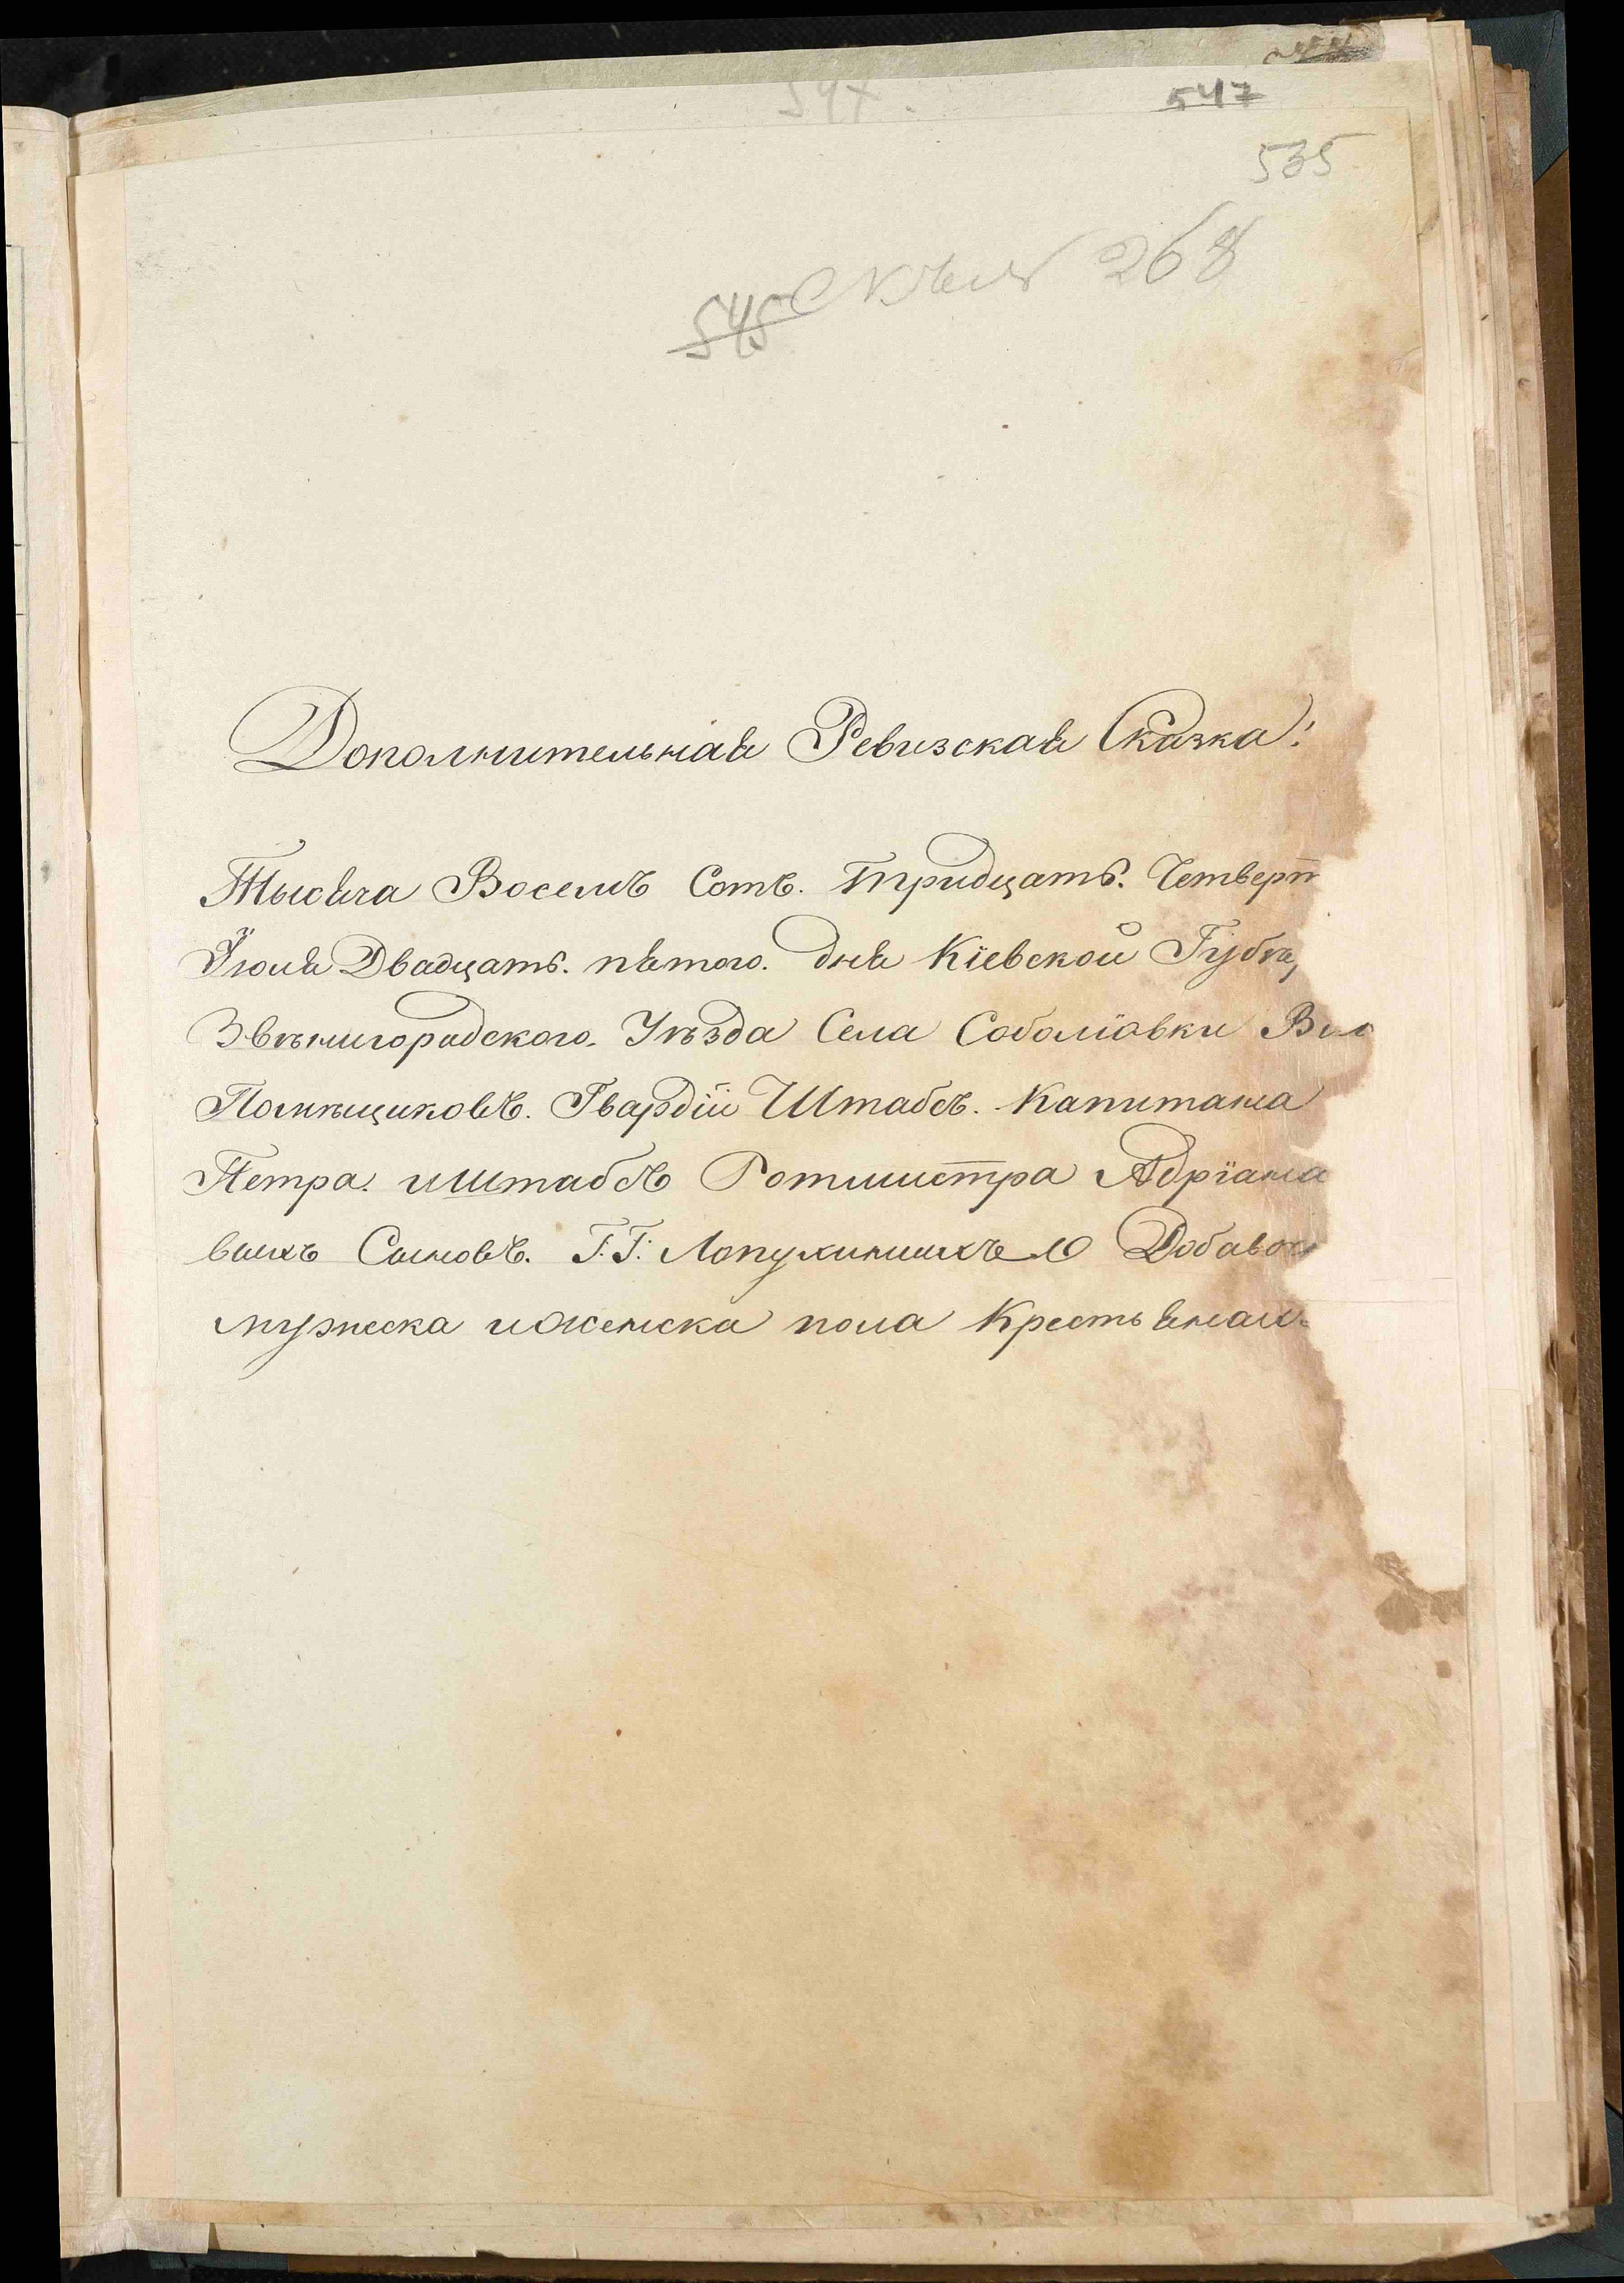 547
535
545 268
Дополнительная Ревизская Сказка:
Тысяча Восемъ Сотъ. Тридцать. Четверт
Іюля Двадцать. пятого. дня Кіевской Губѣ,
Звѣнигородского. Уѣзда Села Соболіовки
Помѣщиковъ. Гвардіи Штабсъ. Капитана
Петра. и Штабсъ Ротмистра Адріана
выхъ Сыновъ. Г:Г: Лопухиныхъ О Добавоч
мужеска и женска пола Крестьянах